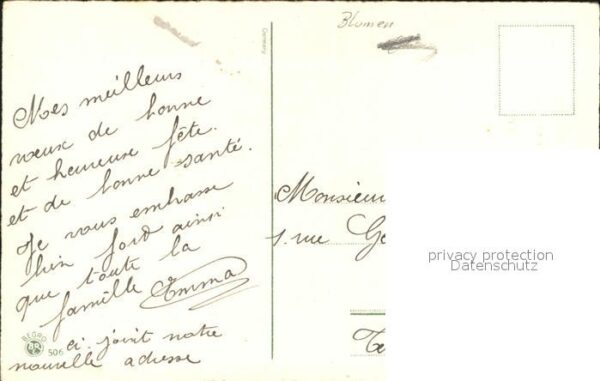 Blumen
Germany
Mes meilleurs
vœux de bonne
et heureuse fête.
et de bonne santé.
Je vous embrasse
bien ford ainsi
que toute la
famille Emma
ci joivit notre
nouvelle adresse
BEGRO
506
Monsieur
1. rue Ge
privacy protection
Datenschutz